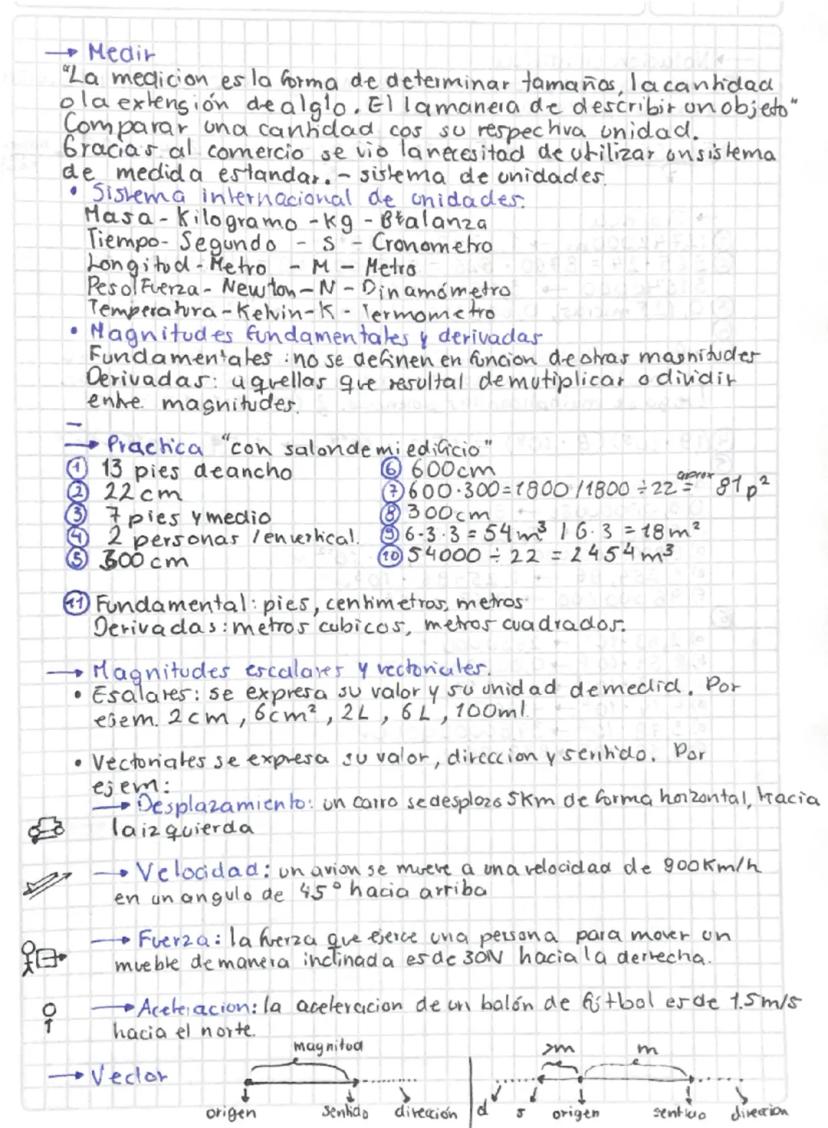 → Medir
"La medicion es la forma de determinar tamaños, la cantidad
o la extensión de alglo. El la manera de describir un objeto"
Comparar una cantidad cos su respectiva unidad.
Gracias al comercio se vio la necesitad de utilizar un sistema
de medida estandar. - sistema de unidades.
• Sistema internacional de unidades.
Masa - Kilogramo - kg - Balanza
Tiempo - Segundo - S - Cronometro
Longitud - Metro - M - Metro
Peso/Fuerza - Newton - N - Dinamómetro
Temperatura - Kelvin - K - Termometro
• Magnitudes fundamentales y derivadas
Fundamentales : no se definen en funcion de otras magnitudes
Derivadas: aquellas que resultal de mutiplicar o dividir
entre magnitudes.
→ Practica "con salon de mi edificio"
① 13 pies de ancho
② 22 cm
③ 7 pies y medio
④ 2 personas / en vertical.
⑤ 300 cm
⑥ 600 cm
⑦ 600·300 = 1800 / 1800 ÷ 22 = aprox 81 p²
⑧ 300 cm
⑨ 6·3·3 = 54 m³ / 6·3 = 18 m²
⑩ 54000 ÷ 22 = 2454 m³
⑪ Fundamental: pies, centimetros, metros
Derivadas: metros cubicos, metros cuadrados.
→ Magnitudes escalares y vectoriales.
• Esalares: se expresa su valor y su unidad de medid. Por
ejem. 2cm, 6cm², 2L, 6L, 100ml.
• Vectoriales se expresa su valor, direccion y sentido. Por
ejem:
→ Desplazamiento: un carro se desplozo 5Km de forma horizontal, hacia
la izquierda
→ Velocidad: un avion se mueve a una velocidad de 900Km/h
en un angulo de 45° hacia arriba
→ Fuerza: la fuerza que ejerce una persona para mover un
mueble de manera inclinada es de 30N hacia la derrecha.
→ Aceleracion: la aceleracion de un balón de fútbol es de 1.5m/s
hacia el norte.
→ Vector
magnitud
origen sentido dirección
>m m
d s origen sentido direccion